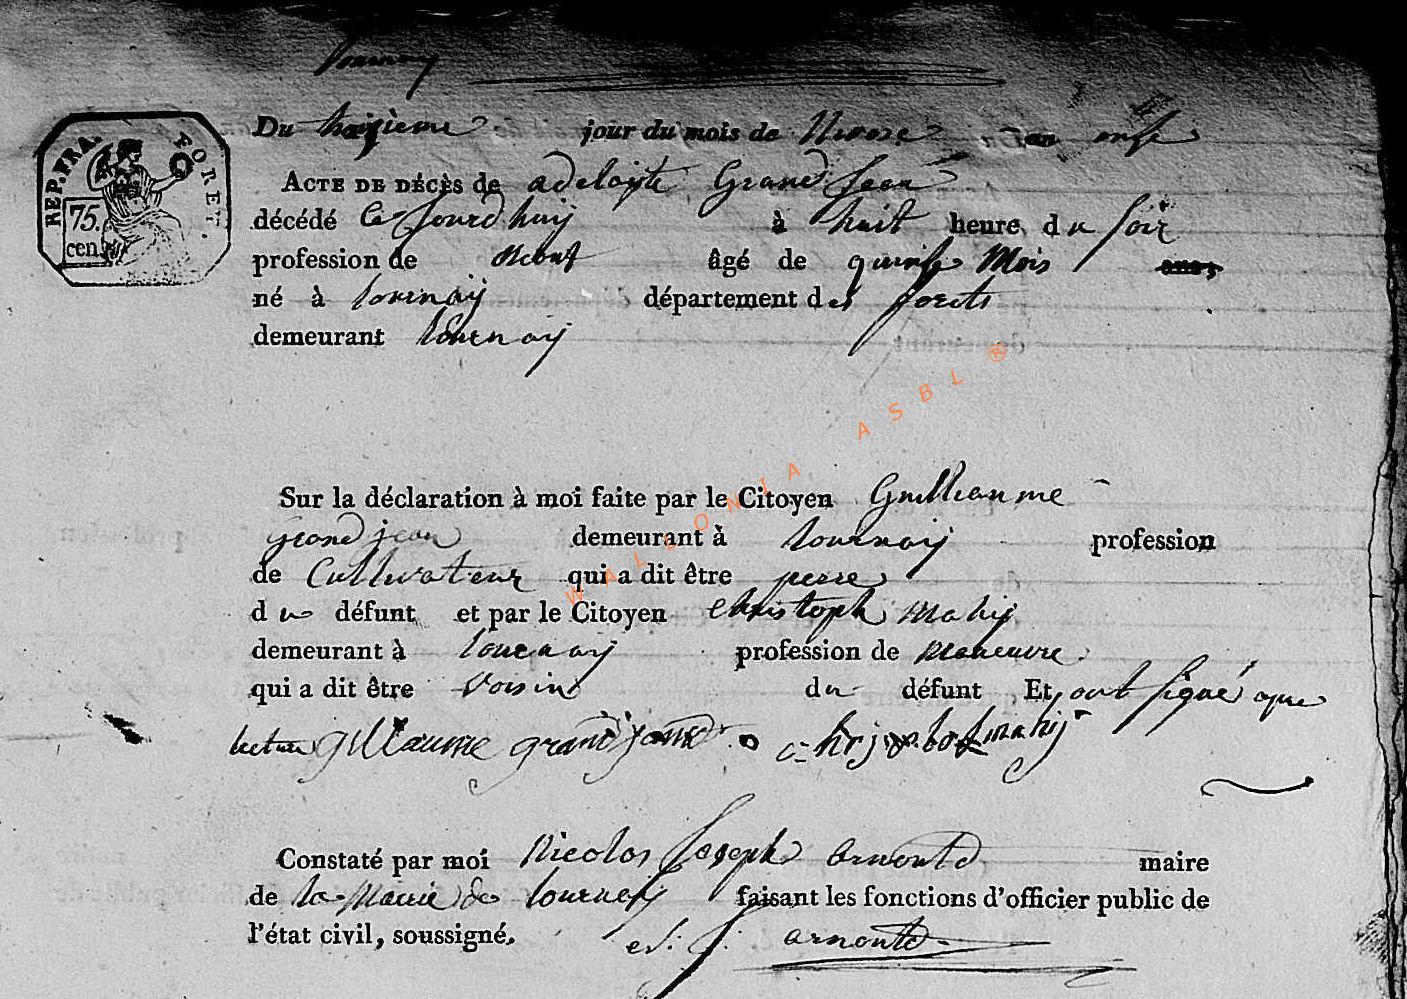 Tournay
Du treizieme jour du mois de Nivose an onse
ACTE DE DÉCÈS de adelayte Grand Jean
décédé Ce Jourdhuij à huit heure du soir
profession de neant âgé de quinse Mois ans,
né à tournaij département des forets
demeurant tournaij
Sur la déclaration à moi faite par le Citoyen Guilleaume
Grand jean demeurant à tournaij profession
de Cultivateur qui a dit être perre
du défunt et par le Citoyen christoph mahij
demeurant à tournaij profession de maneuvre
qui a dit être voisin du défunt Et ont signé apre
lecture gillaume grand jean mahij
Constaté par moi Nicolas Joseph arnould maire
de la Mairie de tournaij faisant les fonctions d'officier public de
l'état civil, soussigné. arnould
REP. FRA. FORET.
75.
cen.
WALLONIA ASBL ®